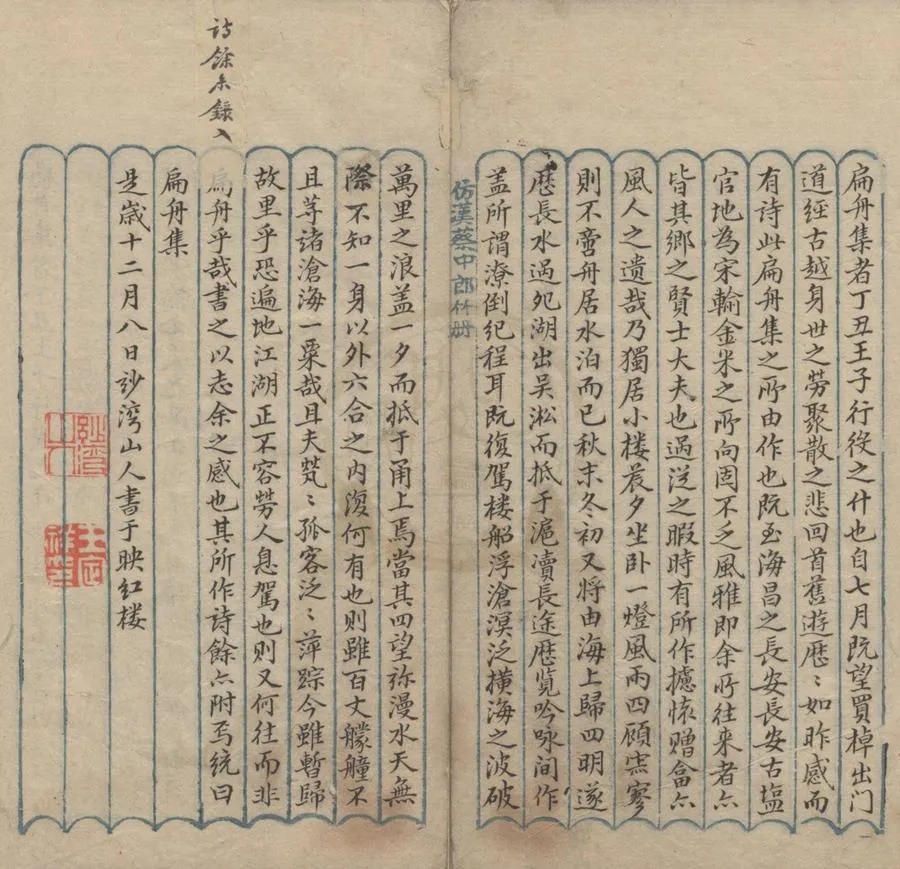 扁舟集者丁丑王子行役之什也自七月既望買棹出门
道经古越身世之勞聚散之悲回首舊遊歷〻如昨感而
有诗此扁舟集之所由作也既至海昌之長安長安古塩
官地為宋輸金米之所向固不乏風雅即余所往来者亦
皆其鄉之賢士大夫也過從之暇時有所作攄懷贈畣亦
風人之遺哉乃獨居小楼晨夕坐卧一燈風雨四顧寥
則不啻舟居水泊而已秋末冬初又將由海上歸四明遂
歷長水過泖湖出吴淞而抵于滬瀆長途歷覧吟咏间作
盖所谓潦倒紀程耳既復駕楼船浮滄溟泛横海之波破
仿漢蔡中郎竹册
萬里之浪盖一夕而抵于甬上焉當其四望弥漫水天無
際不知一身以外六合之内復何有也則雖百丈艨艟不
且等诸滄海一粟哉且夫煢〻孤客泛〻萍踪今雖暫歸
故里乎恐遍地江湖正不容勞人息駕也則又何往而非
扁舟乎哉書之以志余之感也其所作詩餘亦附焉統曰
扁舟集
是歲十二月八日沙湾山人書于映红楼
诗餘未錄入